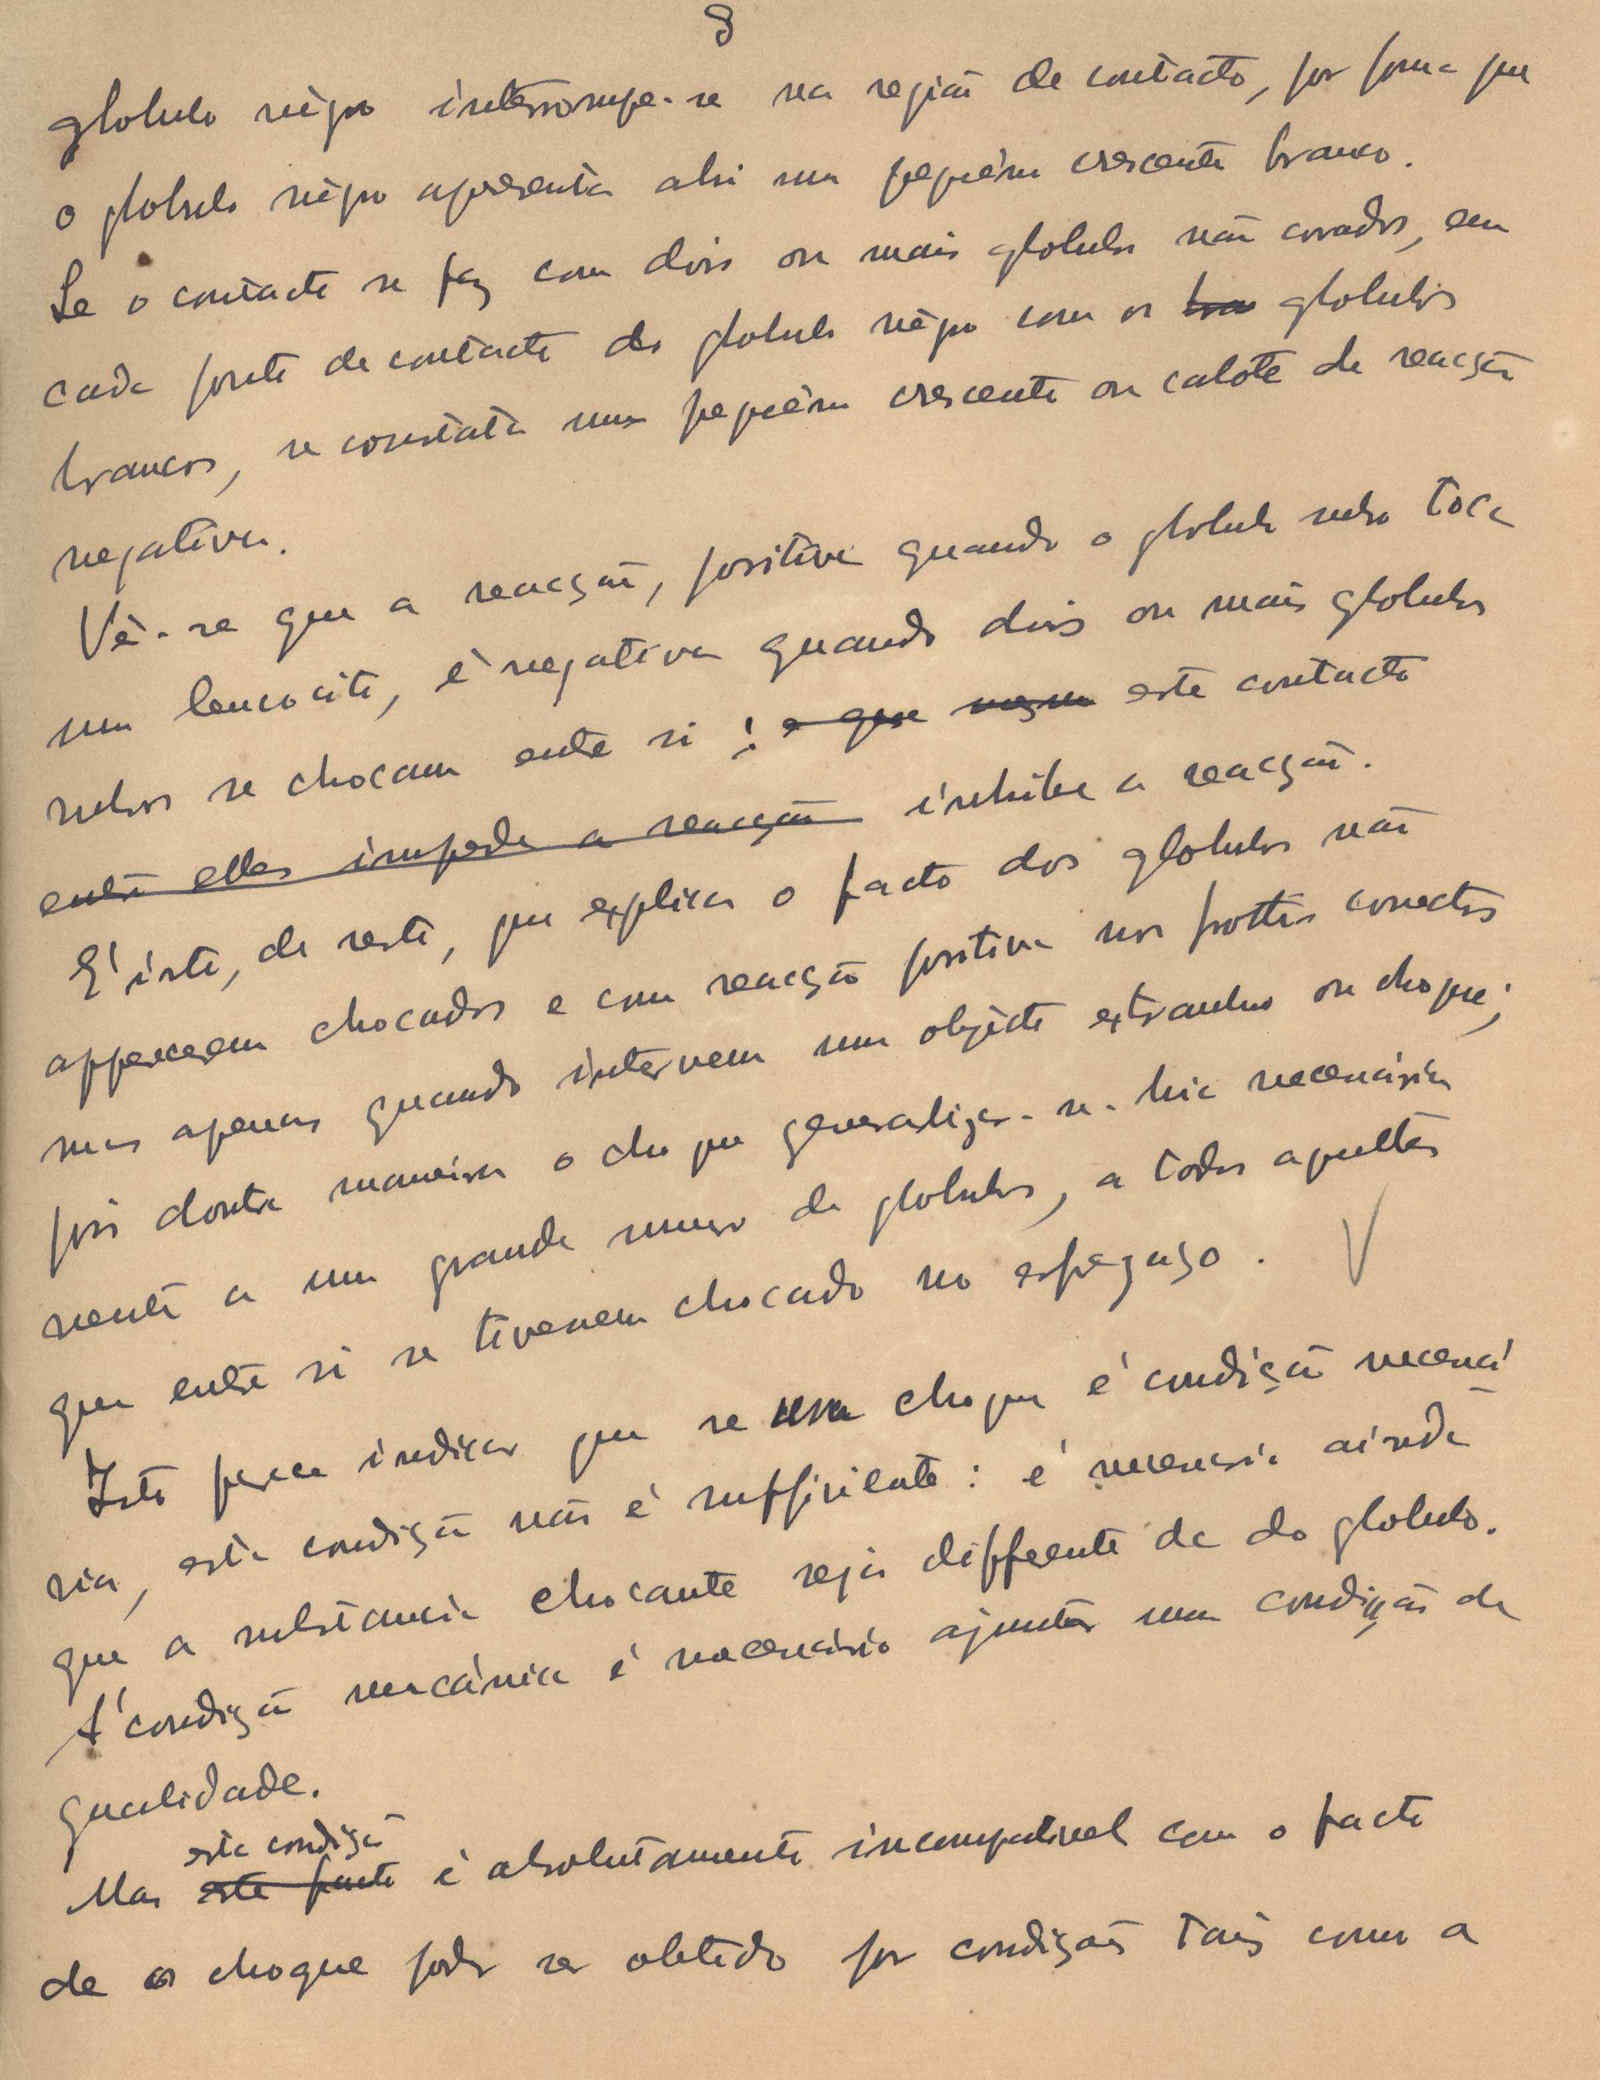 8
globulo nègro interrompe-se na região de contacto, por forma que
o globulo nègro apresenta ahi um pequèno crescente branco.
Se o contacto se faz com dois ou mais globulos não corados, em
cada ponto de contacto do globulo nègro com os bra globulos
brancos, se constata um pequèno crescente ou calote de reacção
negativa.
Vê-se que a reacção, positiva quando o globulo rubro toca
um leucocito, é negativa quando dois ou mais globulos
rubros se chocam entre si : e que este contacto
entre elles impede a reacção inhibe a reacção.
E' isto, de resto, que explica o facto dos globulos não
apparecerem chocados e com reacção positiva nos frottis correctos
mas apenas quando intervem um objècto extranho ou choque;
pois doutra maneira o choque generalizar-se-hia necessaria
mente a um grande numero de globulos, a todos aquelles
que entre si se tivessem chocado no espaço.
Isto parece indicar que se choque é condição necessá
ria, esta condição não é sufficiente : é necessario ainda
que a substancia chocante seja differente da do globulo.
A' condição mecánica é necessário ajuntar uma condição de
qualidade.
esta condição
Mas este facto é absolutamente incompativel com o facto
de o choque poder ser obtido por condições tais como a